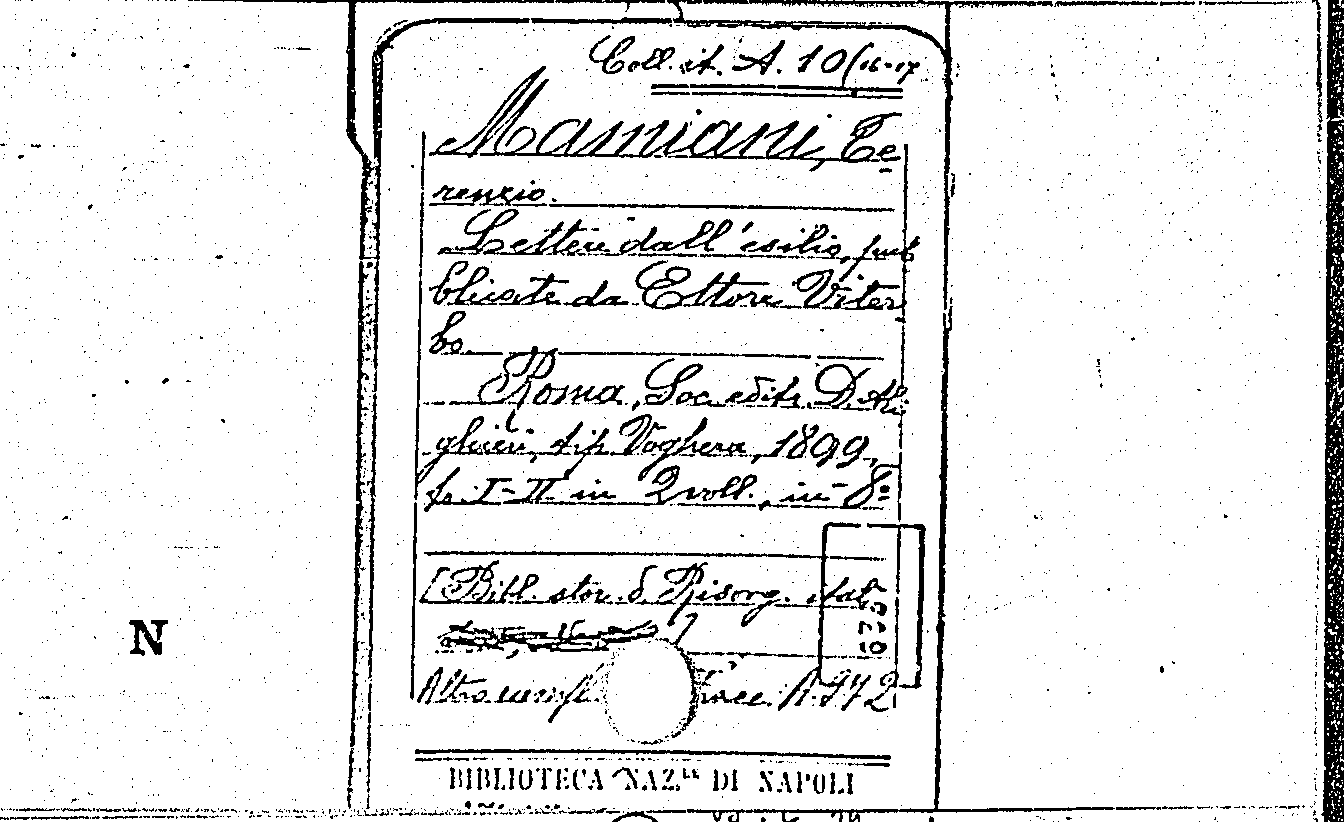 Coll. it. A. 10/16-17
Mamiani, Te
renzio.
Lettere dall'esilio, pub
blicate da Ettore Viter
bo.
Roma, Soc. edit. D. Ali
ghieri, tip. Voghera, 1899,
I-II in 2 voll., in-8º
[Bibl. stor. d. Risorg. ital.
]
N
Altro A.972
BIBLIOTECA NAZ.LE DI NAPOLI